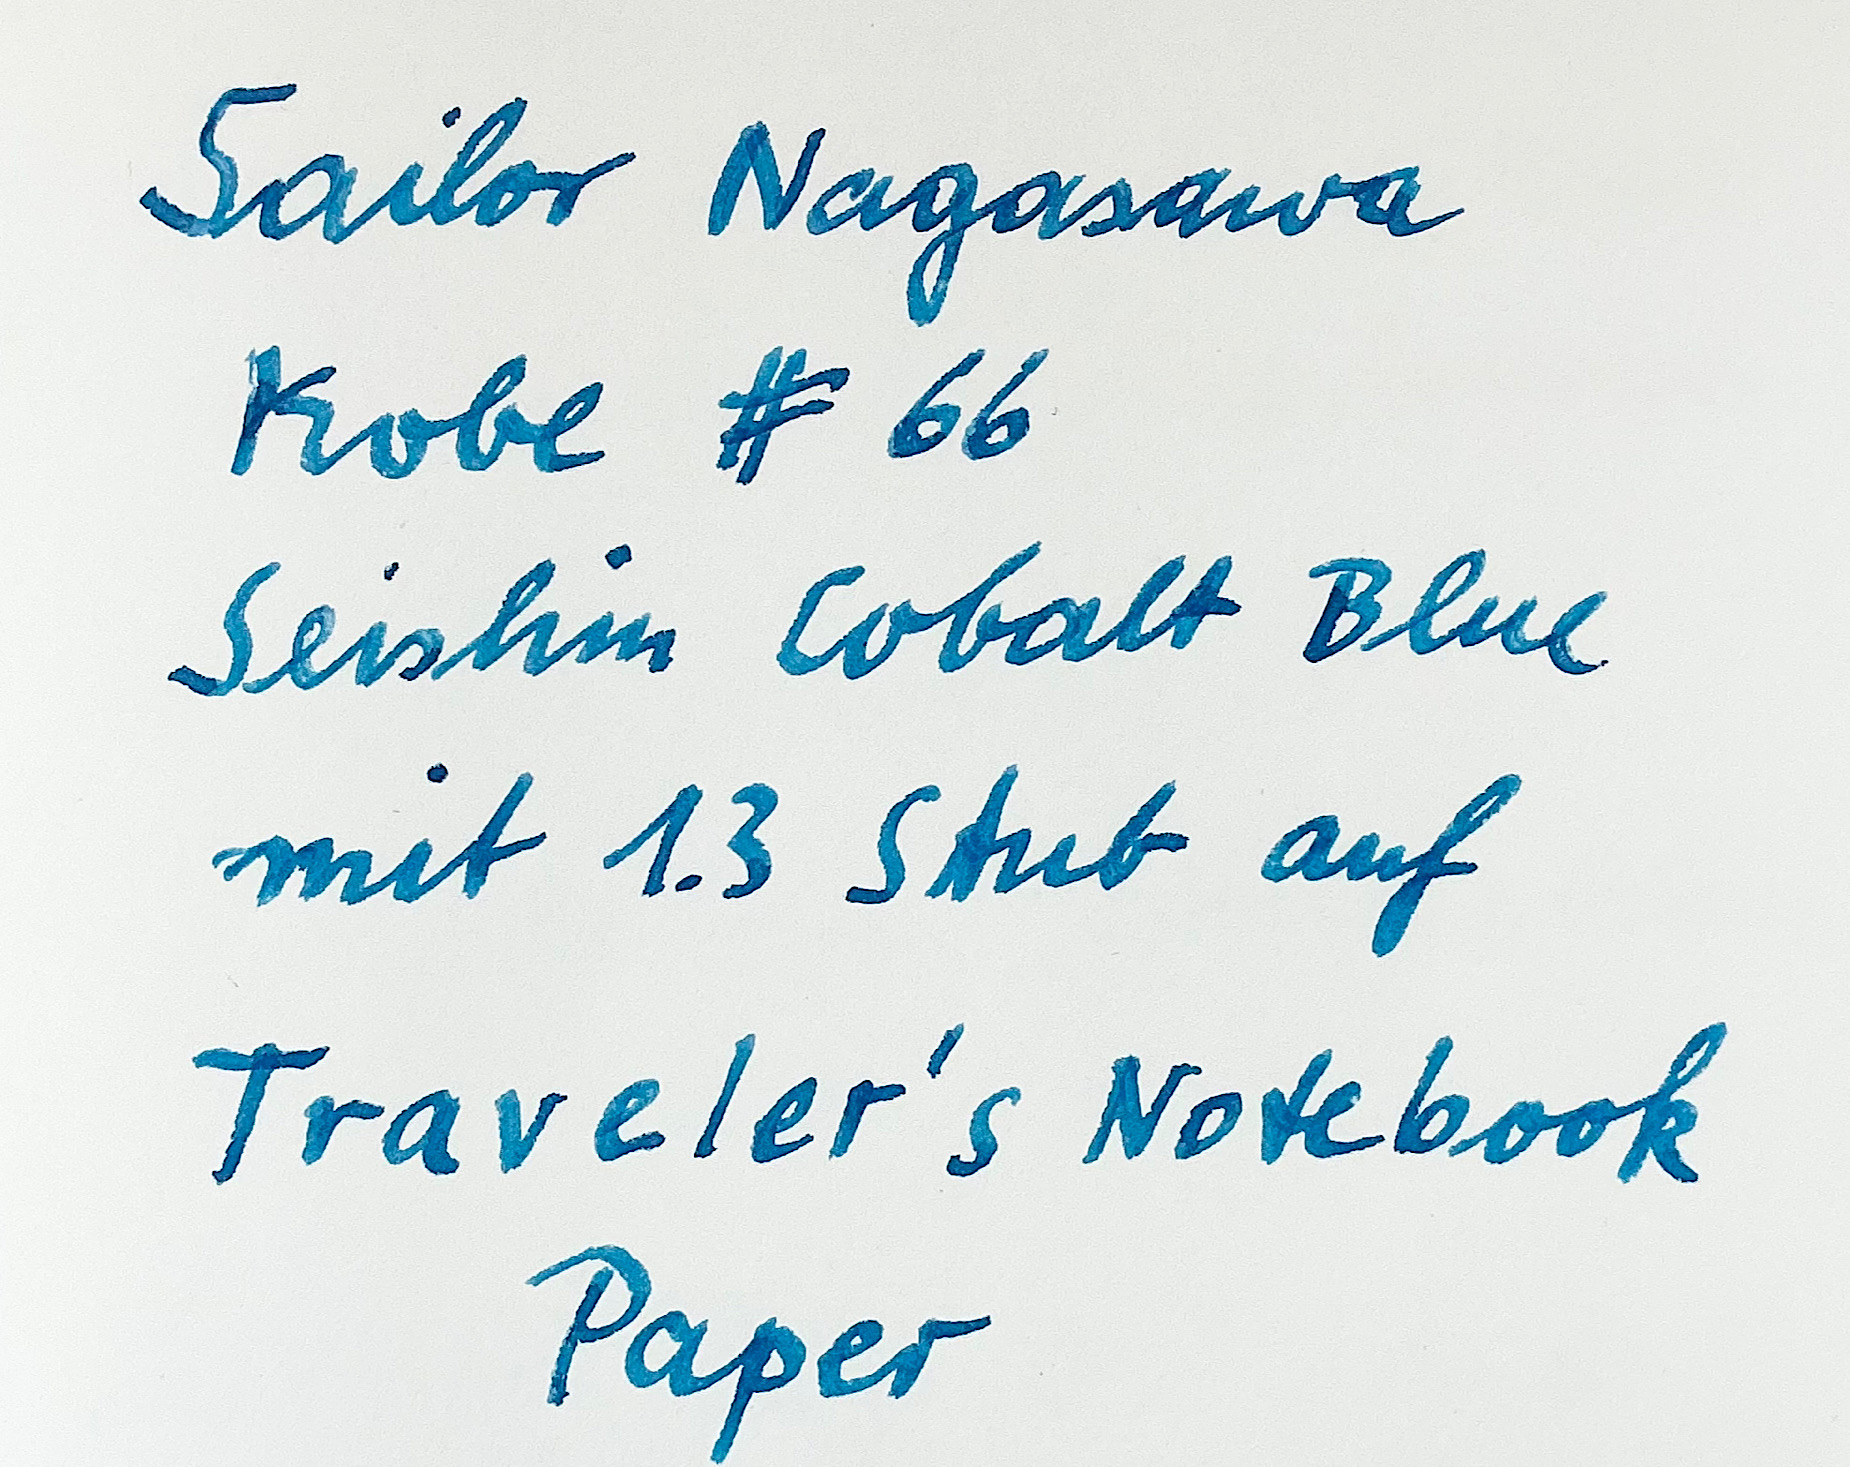 Sailor Nagasawa
Kobe # 66
Seishin Cobalt Blue
mit 1.3 Stub auf
Traveler's Notebook
Paper